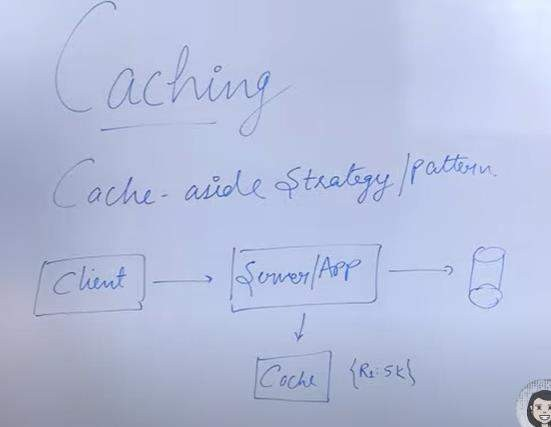 Caching
Cache-aside Strategy/pattern.
Client
Server/App
Cache
{R1:5K}